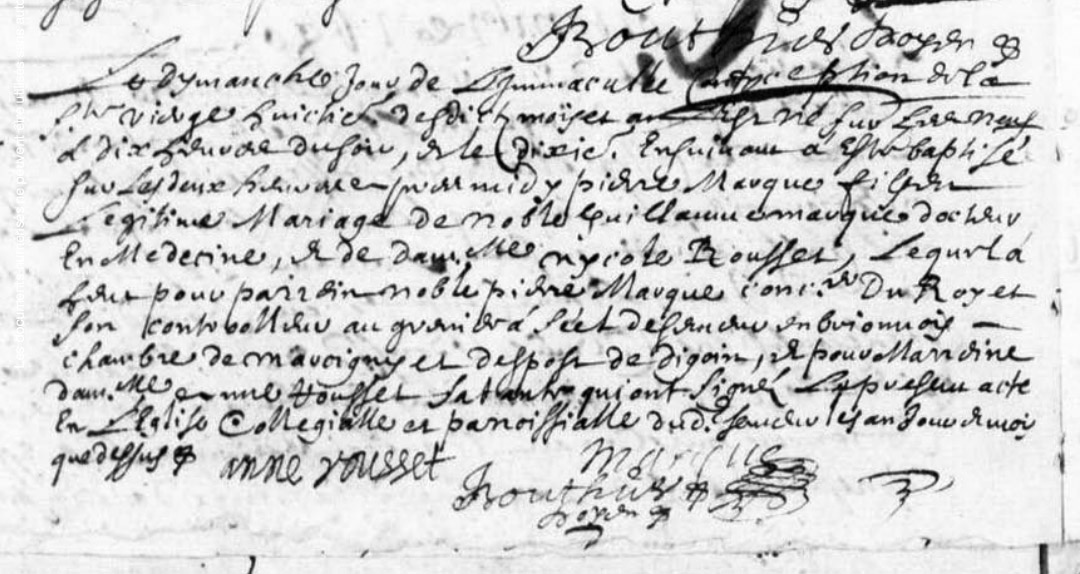 Bouthier doyen
Le dymanche Jour de L Immaculee conception de la
ste vierge huictie. desdictz mois et an Est né sur Les neuf
à dix heures du soir, et le dixie. Ensuivant à Este baptisé
sur Les deux heures apres midy pierre Marque fils en
Legitime Mariage de noble Guillaume marque docteur
En Medecine, et de dam.lle nycole Rousset, Lequel à
heu pour parrein noble pierre Marque conc.er Du Roy et
son controolleur au grenier à sel et de semeur en brionnois
chambre de marcigny et despost de digoin, et pour Marreine
dam.lle anne Rousset sa tante qui ont signé Le present acte
En L'Eglise Collegialle et parroissialle dud. semeur les an Jour et mois
que dessus anne rousset Marque
Bouthier
doyen